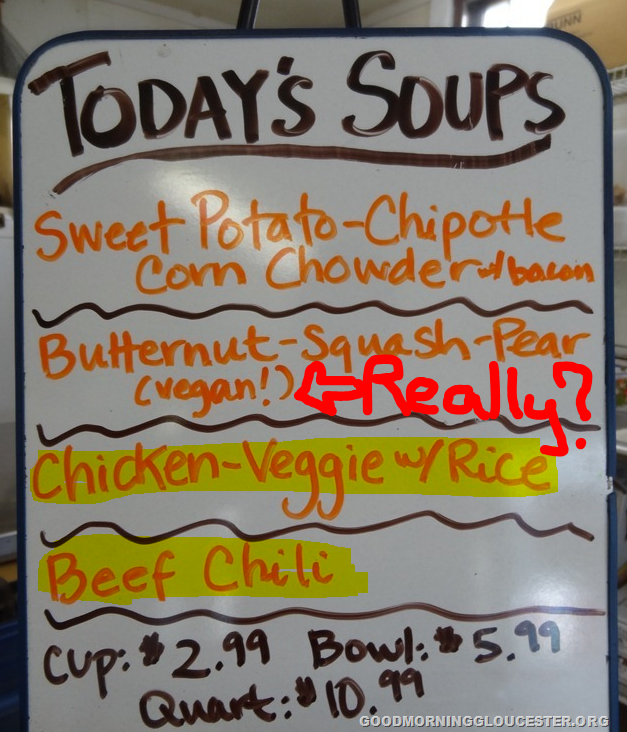 TODAY'S SOUPS
Sweet Potato-Chipotle
Corn Chowder w/bacon
Butternut-Squash-Pear
(vegan!) Really?
Chicken-Veggie w/ Rice
Beef Chili
Cup: $2.99 Bowl: $5.99
Quart: $10.99
GOODMORNINGGLOUCESTER.ORG